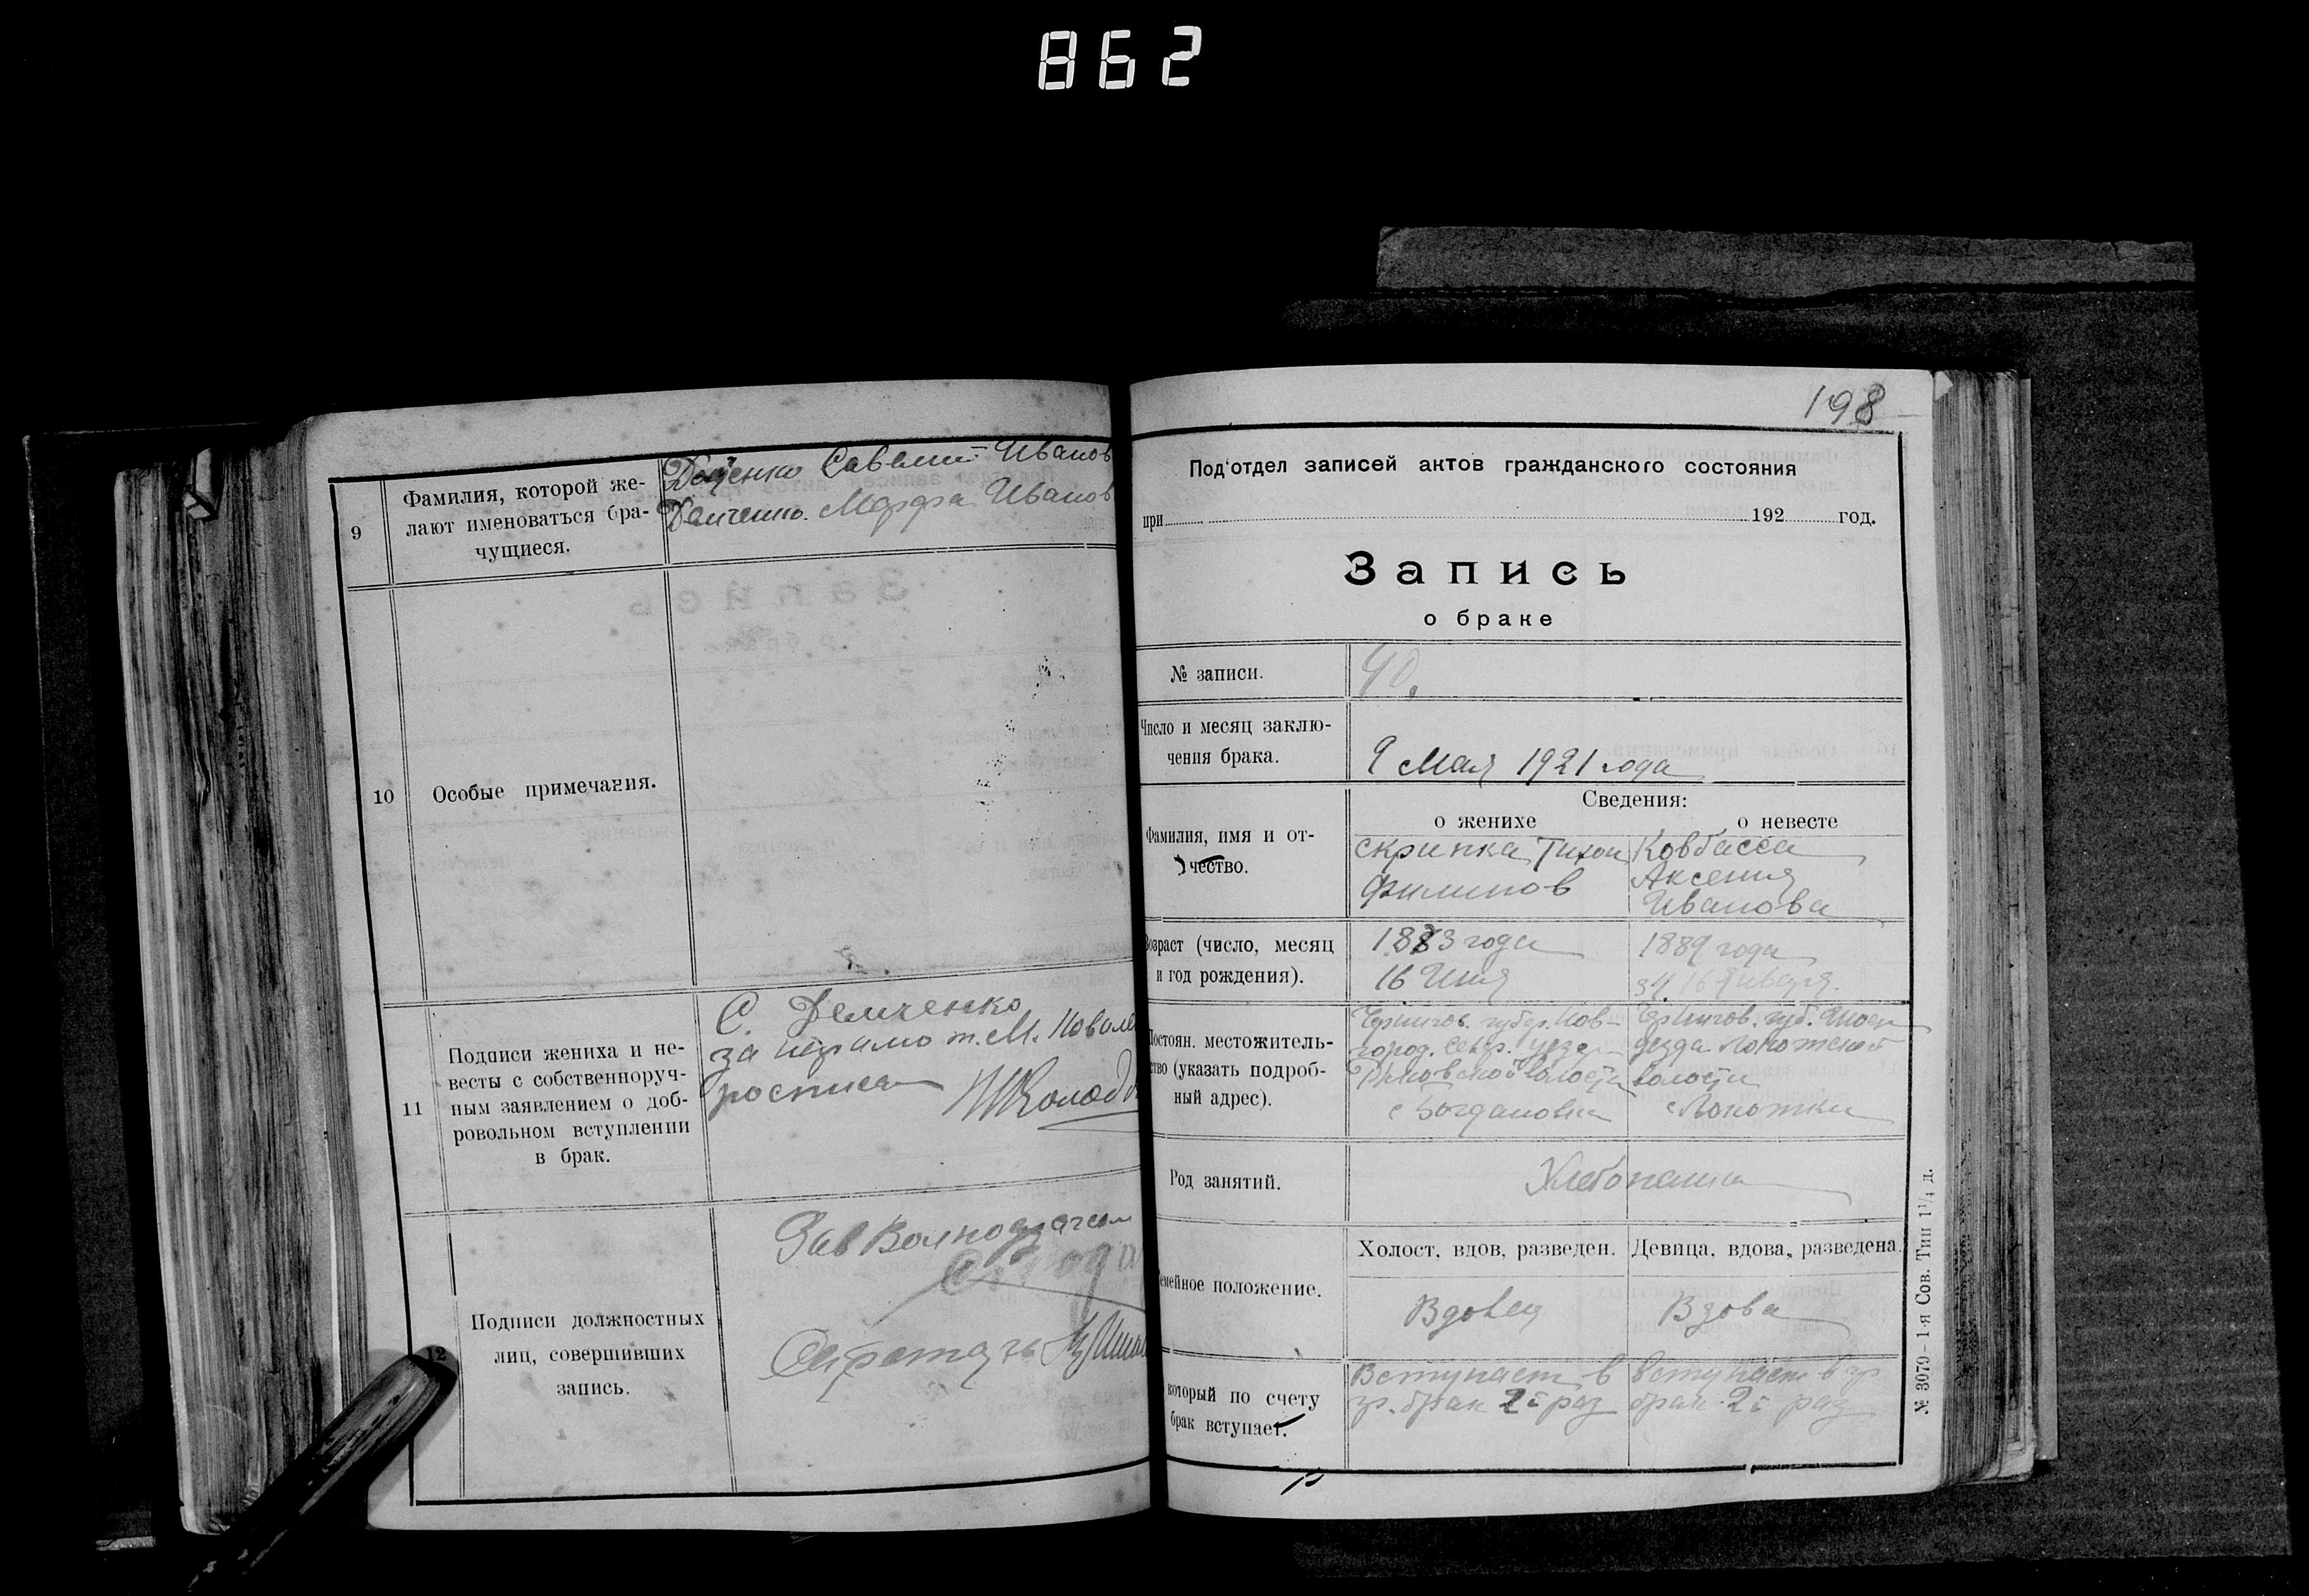 862
9
Фамилия, которой же-
лают именоваться бра-
чущиеся.
Иванов
Марфа Иванов
10
Особые примечания.
11
Подписи жениха и не-
весты с собственноруч-
ным заявлением о доб-
ровольном вступлении
в брак.
С. Демченко
за
12
Подписи должностных
лиц, совершивших
запись.
Зав
198
Под'отдел записей актов гражданского состояния
при 192 год.
Запись
о браке
№ записи.
90.
Число и месяц заклю-
чения брака.
9 Мая 1921 года
Сведения:
о женихе
о невесте
Фамилия, имя и от-
чество.
Скрипка Тихон
Филипов
Ковбасса
Аксения
Иванова
Возраст (число, месяц
и год рождения).
1883 года
16
1889 года
Января.
Постоян. местожитель-
ство (указать подроб-
ный адрес).
Чернигов. губер. Нов-
город. Север.
волости
с Богдановка
Чернигов. губ.
уезда
волости
с Локотки
Род занятий.
Семейное положение.
Холост, вдов, разведен.
Девица, вдова, разведена.
Вдовец
Вдова
который по счету
брак вступает.
Вступает в
гр. брак 2й раз
вступает в гр
брак 2й раз
№ 3079 – 1-я Сов. Тип 1¹/₄ д.